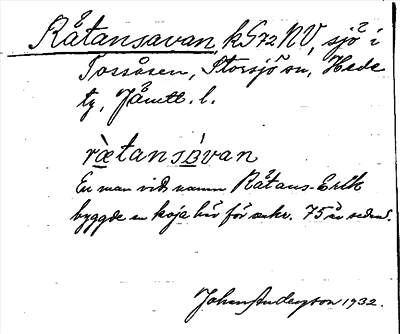 Råtansavan, k S 72 NV, sjö i
Tossåsen, Storsjö sn, Hede
tg, Jämtl. l.
ræ̀tansávan
En man vid namn Råtans-Erik
byggde en koja här för omkr. 75 år sedan.
Johan Anderson 1932.